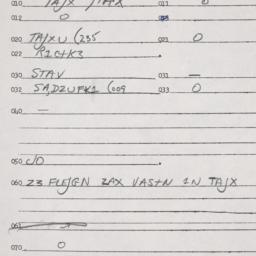 010 TAJX 011 0
012 0 013
020 TAJXU (235 021 0
022 R1C+K3
030 STAV 031 —
032 SADZUFK1 (009 033 0
040 —
050 c/o
060 23 FLEJGN ZAX VAS+N 1N TAJX
061
070 0